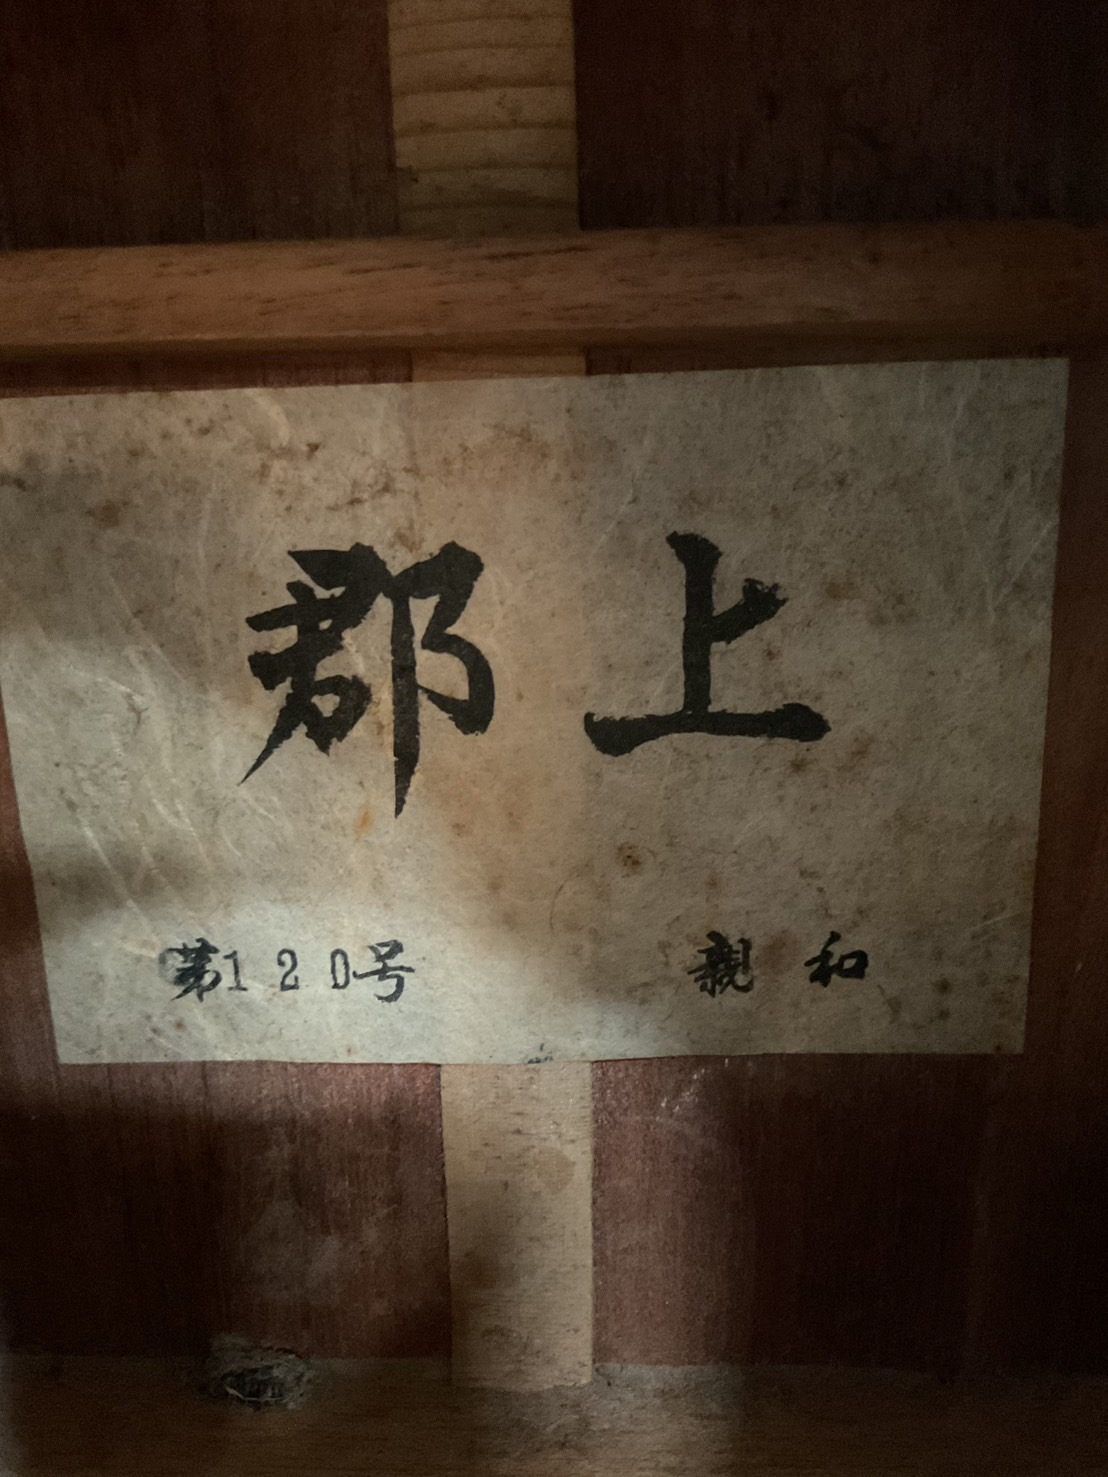 郡上
第120号 親和